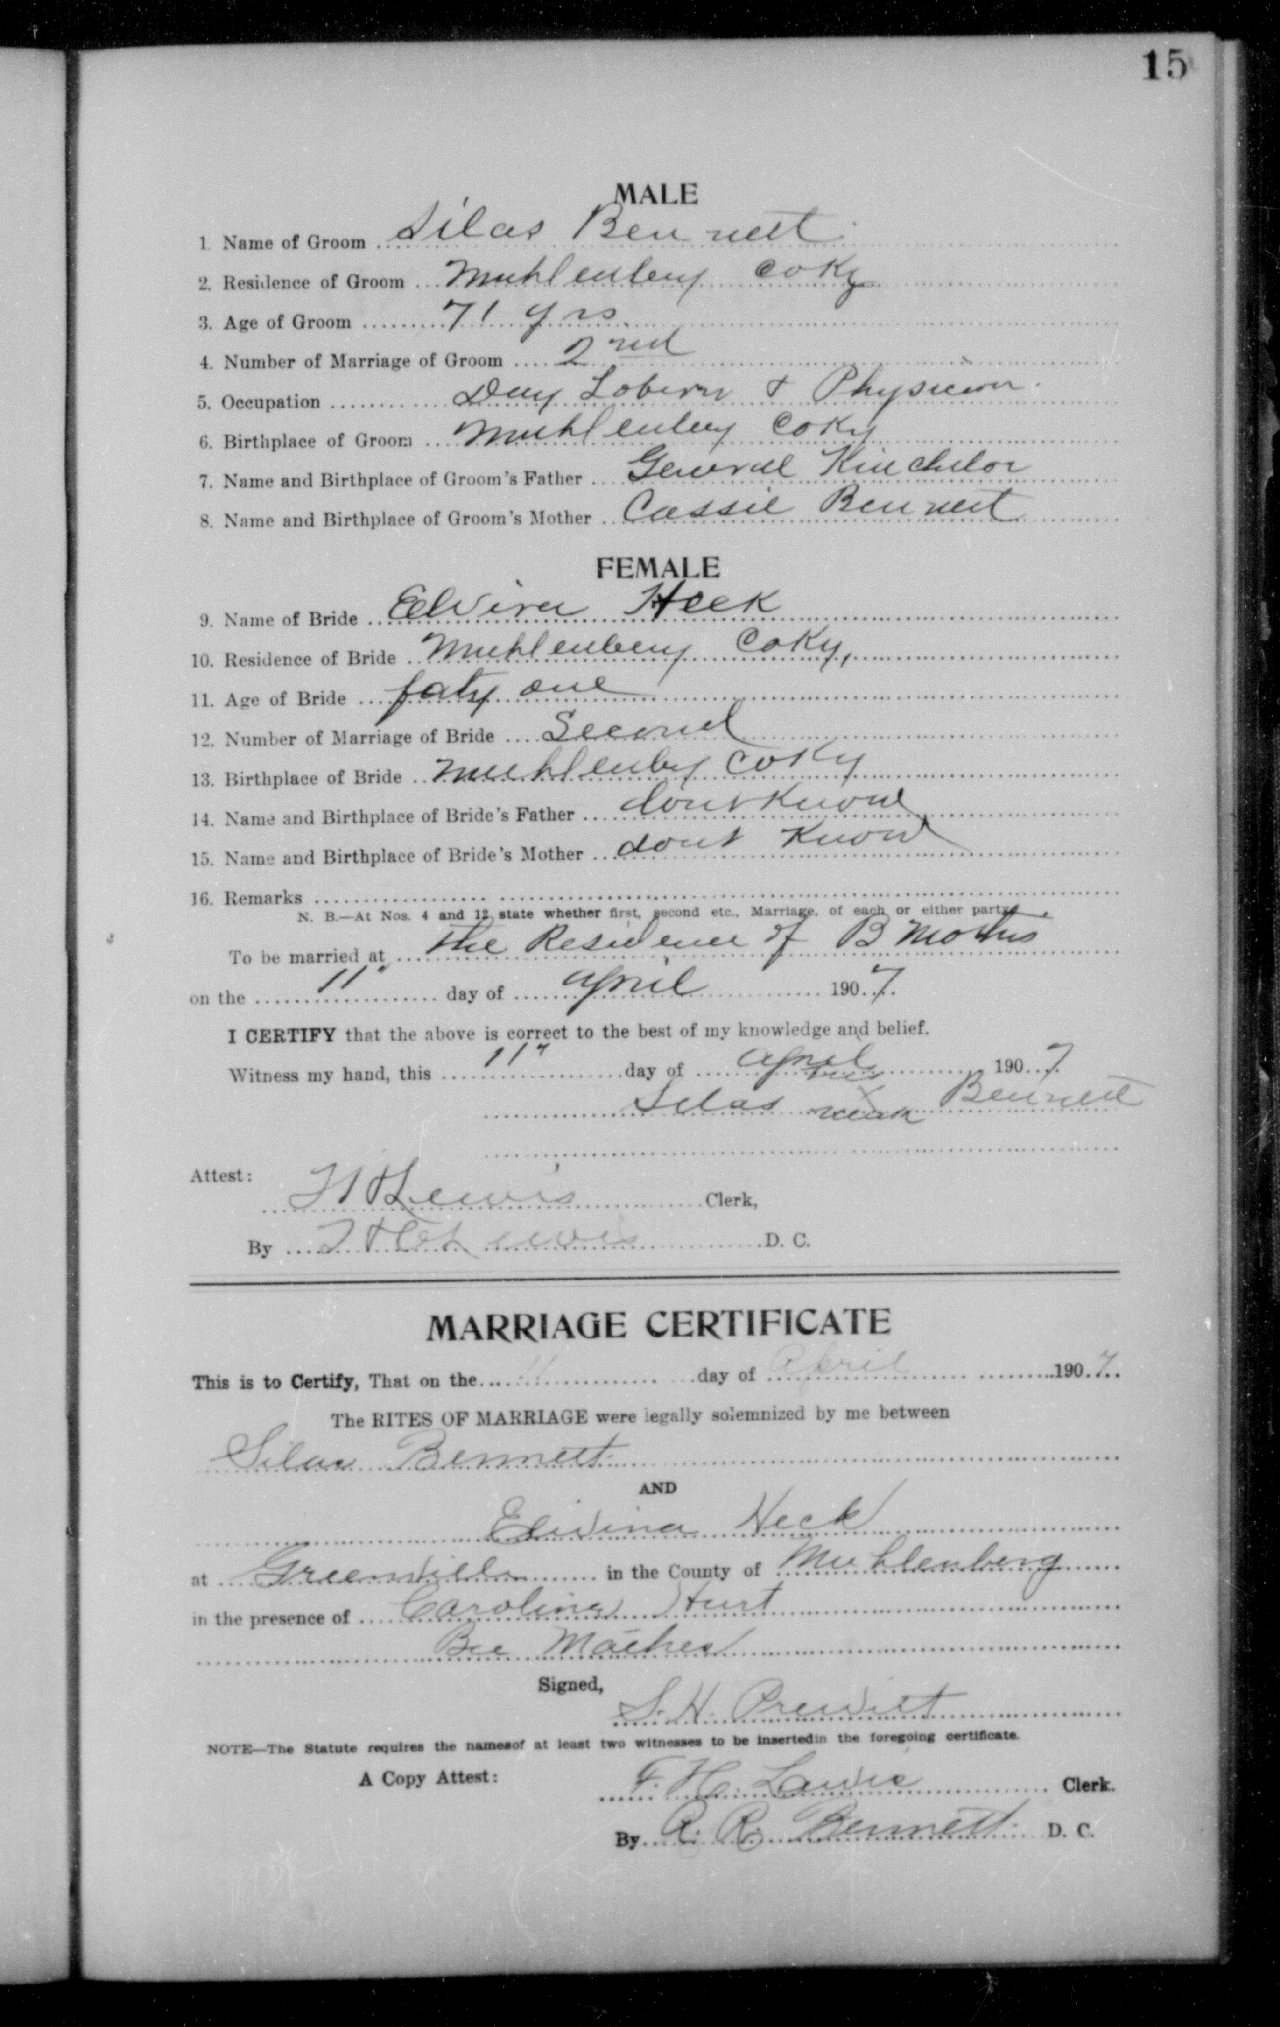 15
MALE
1. Name of Groom Silas Bennett
2. Residence of Groom Muhlenberg Co Ky
3. Age of Groom 71 yrs
4. Number of Marriage of Groom 2nd
5. Occupation Day Laborer & Physician
6. Birthplace of Groom Muhlenberg Co Ky
7. Name and Birthplace of Groom's Father General Kincheloe
8. Name and Birthplace of Groom's Mother Cassie Bennett
FEMALE
9. Name of Bride Elvira Heck
10. Residence of Bride Muhlenberg Co Ky,
11. Age of Bride forty one
12. Number of Marriage of Bride Second
13. Birthplace of Bride Muhlenberg Co Ky
14. Name and Birthplace of Bride's Father dont Know
15. Name and Birthplace of Bride's Mother dont Know
16. Remarks
N. B.—At Nos. 4 and 12 state whether first, second etc., Marriage, of each or either party.
To be married at The Residence of B
on the 11" day of April 1907.
I CERTIFY that the above is correct to the best of my knowledge and belief.
Witness my hand, this 11" day of April 1907
his
Silas x Bennett
mark
Attest:
Lewis Clerk,
By Lewis D. C.
MARRIAGE CERTIFICATE
This is to Certify, That on the 11 day of April 1907.
The RITES OF MARRIAGE were legally solemnized by me between
Silas Bennett
AND
Elvina Heck
at Greenville in the County of Muhlenberg
in the presence of Caroline Hurt
Bee
Signed,
S. H. Prewitt
NOTE—The Statute requires the namesof at least two witnesses to be insertedin the foregoing certificate.
A Copy Attest:
F. H. Lewis Clerk.
By R. R. Bennett D. C.